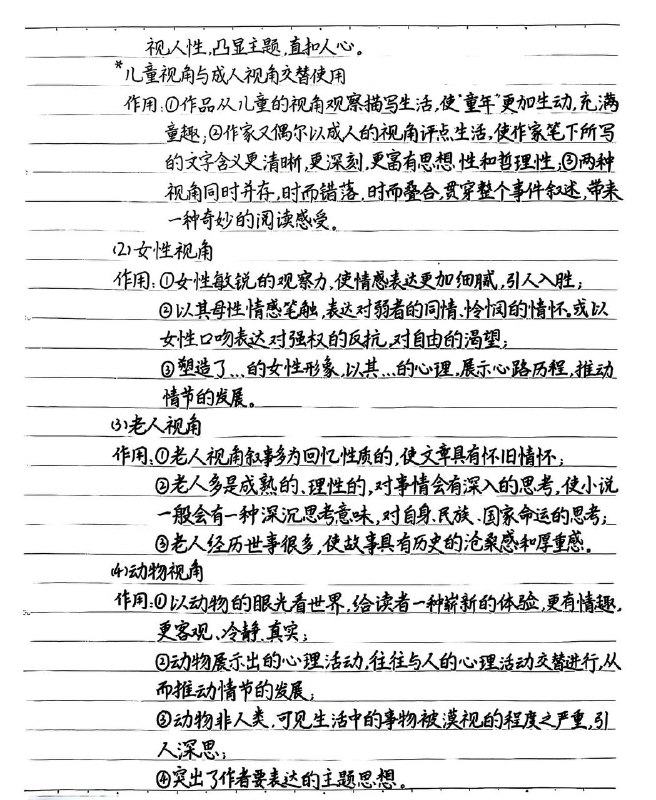 视人性,凸显主题,直扣人心。
*儿童视角与成人视角交替使用
作用:①作品从儿童的视角观察描写生活,使"童年"更加生动,充满
童趣;②作家又偶尔以成人的视角评点生活,使作家笔下所写
的文字含义更清晰,更深刻,更富有思想性和哲理性;③两种
视角同时并存,时而错落,时而叠合,贯穿整个事件叙述,带来
一种奇妙的阅读感受。
(2)女性视角
作用:①女性敏锐的观察力,使情感表达更加细腻,引人入胜;
②以其母性情感笔触,表达对弱者的同情、怜悯的情怀。或以
女性口吻表达对强权的反抗,对自由的渴望;
③塑造了...的女性形象,以其...的心理,展示心路历程,推动
情节的发展。
(3)老人视角
作用:①老人视角叙事多为回忆性质的,使文章具有怀旧情怀;
②老人多是成熟的、理性的,对事情会有深入的思考,使小说
一般会有一种深沉思考意味,对自身、民族、国家命运的思考;
③老人经历世事很多,使故事具有历史的沧桑感和厚重感。
(4)动物视角
作用:①以动物的眼光看世界,给读者一种崭新的体验,更有情趣,
更客观、冷静、真实;
②动物展示出的心理活动,往往与人的心理活动交替进行,从
而推动情节的发展;
③动物非人类,可见生活中的事物被漠视的程度之严重,引
人深思;
④突出了作者要表达的主题思想。